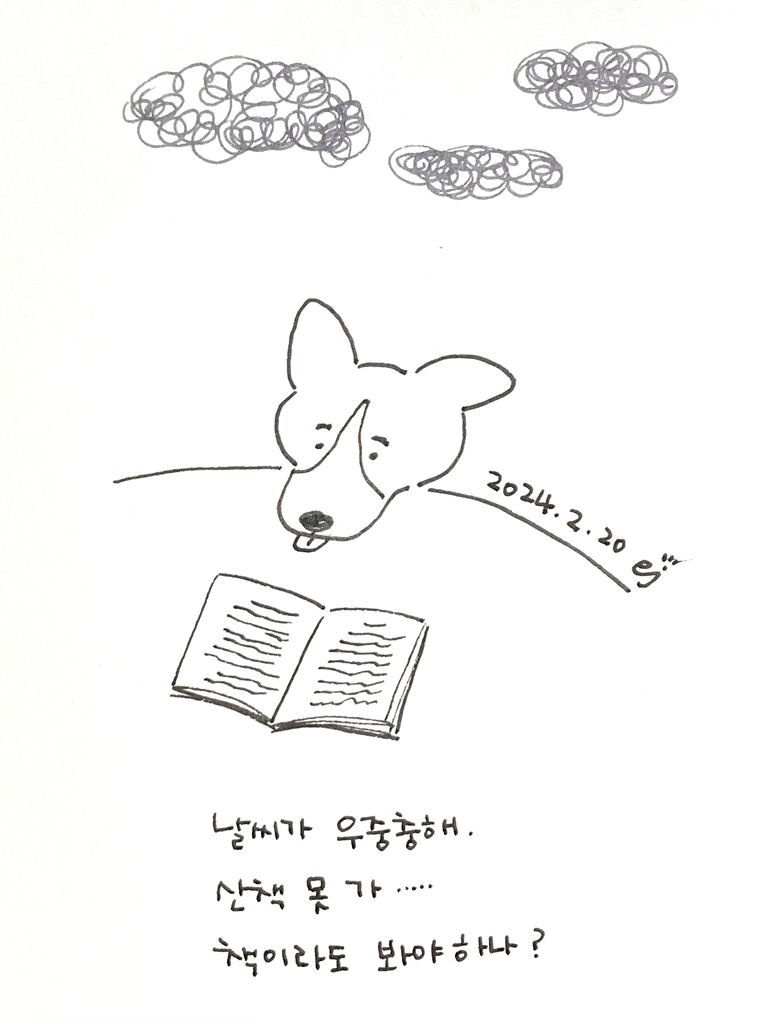 2024.2.20
날씨가 우중충해.
산책 못 가 .....
책이라도 봐야하나?